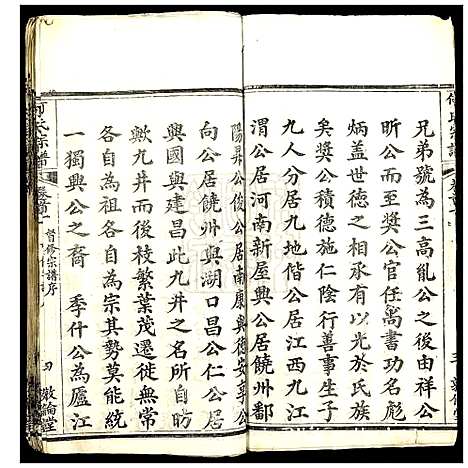 兄弟號為三高胤公之由祥公
昕公而至獎公官任禹書功名彪
炳蓋世德之相承有以光於氏族
矣獎公積德施仁陰行善事生子
九人分居九地偕公居江西九江
渭公居河南新屋興公居饒州鄱
陽昇公俊公居南康與德安享公
向公居饒州與湖口昌公仁公居
興國與建昌此九井之名所自出
歟九井而後枝繁葉茂遷徙無常
各自為祖各自為宗其勢莫能統
一獨興公之裔 季什公為廬江
何氏宗譜 卷首 督修宗譜序 敦倫堂